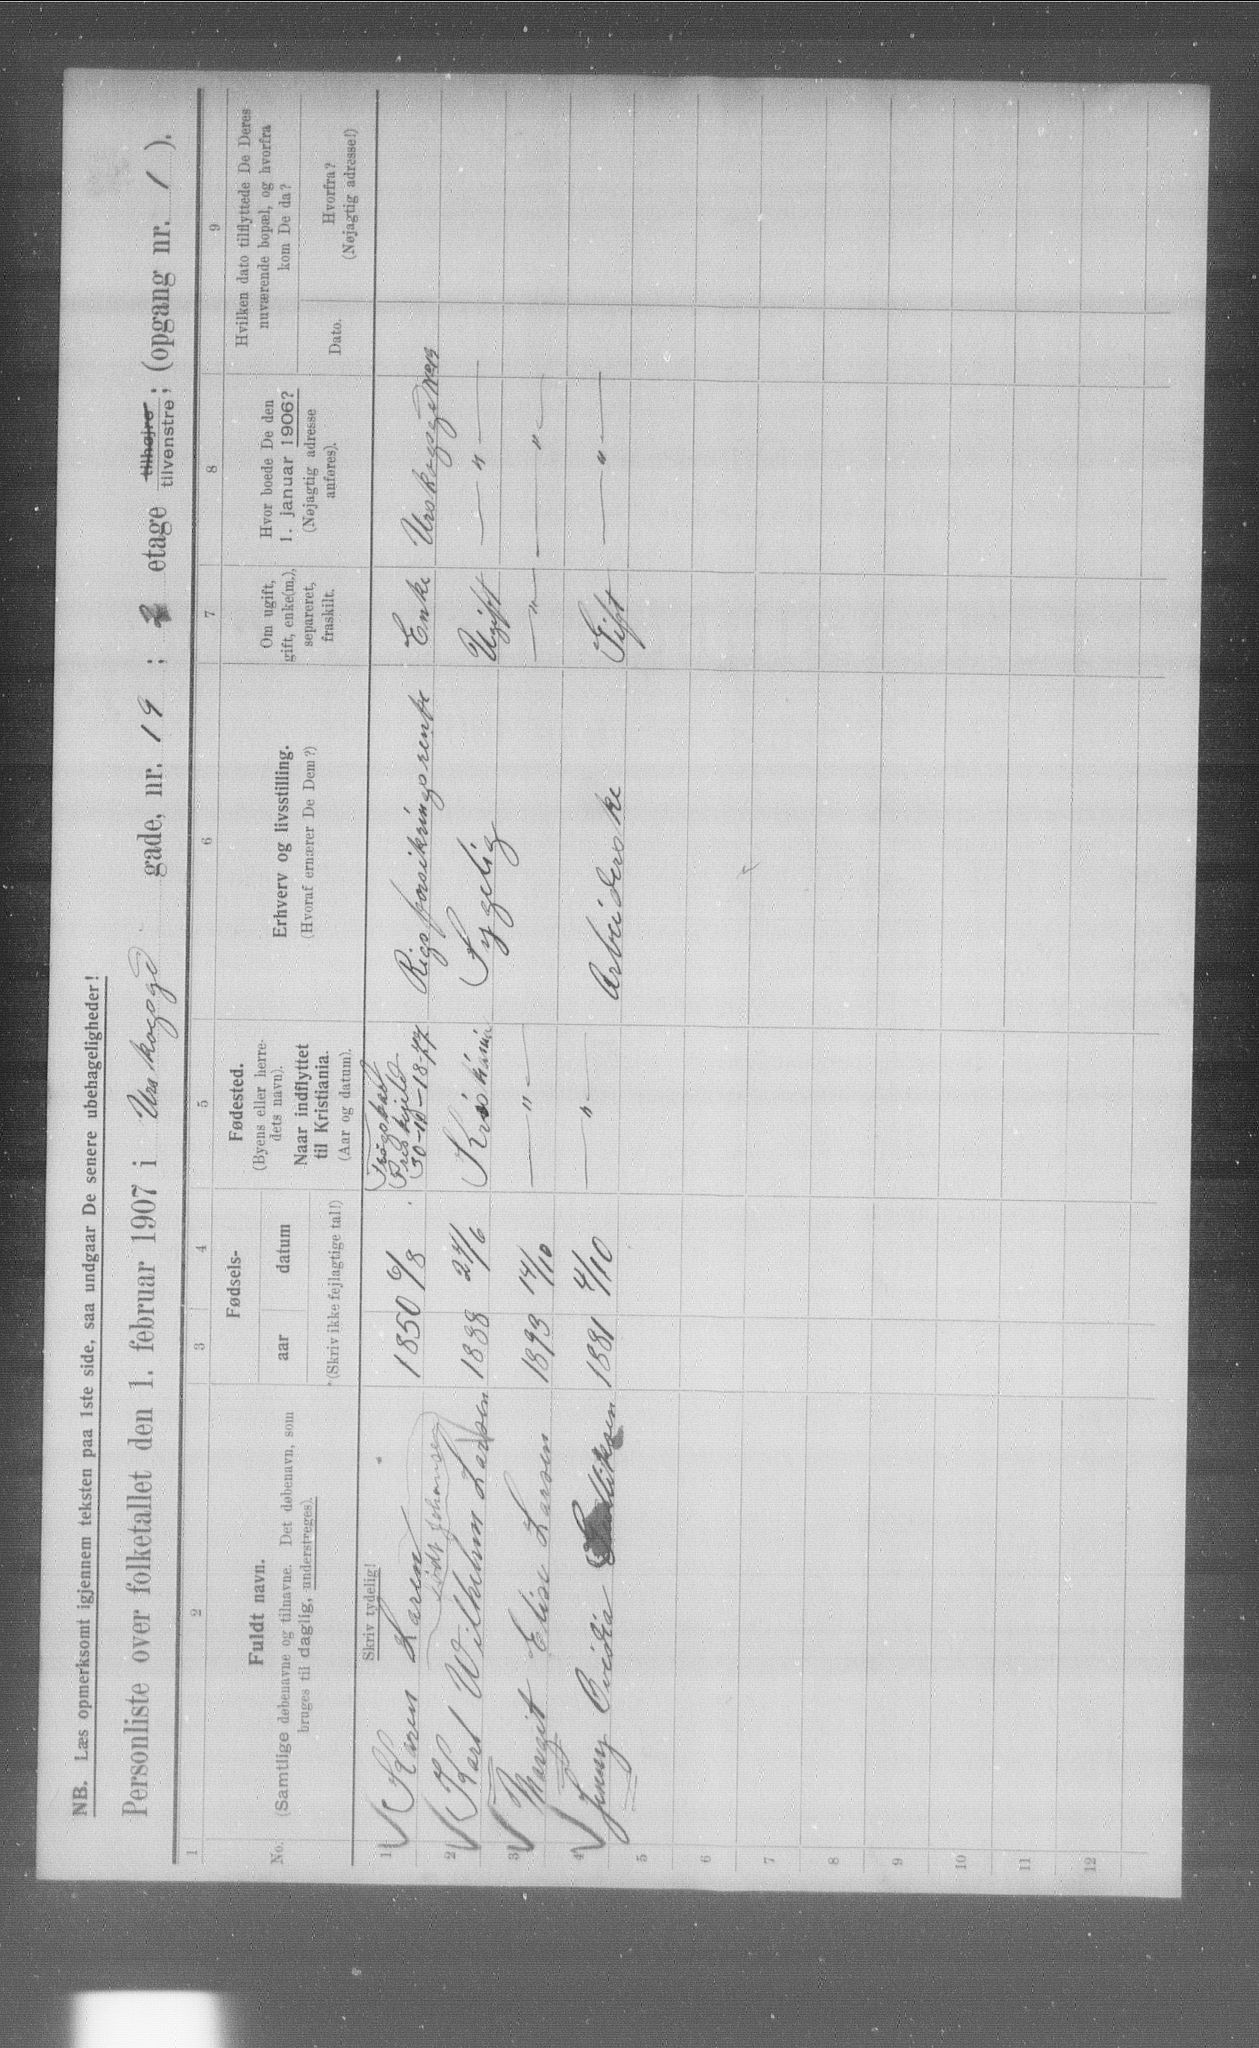 NB. Læs opmerksomt igjennem teksten paa 1ste side, saa undgaar De senere ubehageligheder!
Personliste over folketallet den 1. februar 1907 i Urskogsgd gade, nr. 19 ; etage tilhøjre tilvenstre ; (opgang nr. 1 ).
1 2 3 4 5 6 7 8 9
No.
Fuldt navn.
(Samtlige døbenavne og tilnavne. Det døbenavn, som
bruges til daglig, understreges).
Fødsels-
aar datum
(Skriv ikke fejlagtige tal!)
Fødested.
(Byens eller herre-
dets navn).
Naar indflyttet
til Kristiania.
(Aar og datum).
Erhverv og livsstilling.
(Hvoraf ernærer De Dem?)
Om ugift,
gift, enke(m.),
separeret,
fraskilt.
Hvor boede De den
1. januar 1906?
(Nøjagtig adresse
anføres).
Hvilken dato tilflyttede De Deres
nuværende bopæl, og hvorfra
kom De da?
Dato.
Hvorfra?
(Nøjagtig adresse!)
Skriv tydelig!
1 Karen Larsen født Johansen 1850 6/8 30-10-1877 Rigsforsikringsrente Enke Urskogsgd
2 Karl Wilhelm Larsen 1888 24/6 Kristiania Sygelig Ugift — " —
3 Margit Elise Larsen 1893 14/10 — " — — " — — " —
4 Jenny 1881 4/10 — " — Arbeiderske Gift — " —
5
6
7
8
9
10
11
12